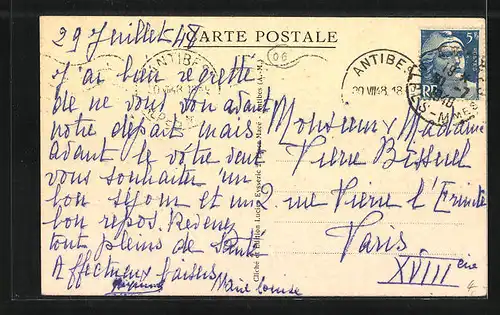 29 Juillet 48
CARTE POSTALE
J'ai bien regretté
de ne vous voir avant
notre départ mais
avant le vôtre vous
vous souhaiter un
bon séjour et un
bon repos. Revenez
tout pleins de Santé
Affectueux baisers
Marie Louise
Cliché et Edition Lucien Eysseric Antibes (A.-M.)
06
ANTIBES
30 VII 48 18
ANTIBES
30 VII 48. 18
5F
RF
Monsieur & Madame
Pierre
2 rue Pierre l'Ermite
Paris
XVIII ème